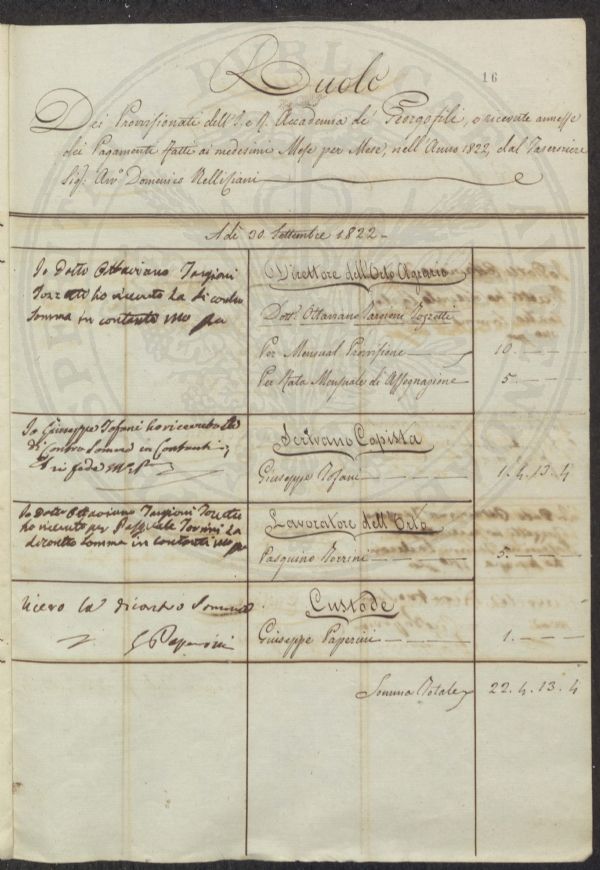 16
Ruolo
Dei Provvisionati dell'I. e R. Accademia de' Georgofili, e ricevute annesse
dei Pagamenti fatti ai medesimi Mese per Mese, nell'Anno 1822, dal Tesoriere
Sig: Avv.o Domenico Nelli
A dì 30. Settembre 1822 -
Io Dotto Ottaviano Targioni
Tozzetti ho ricevuto la di contro
somma in contante mo pa
Direttore dell'Orto Agrario
Dott. Ottaviano Targioni Tozzetti
Per Mensual Provisione 10. - - -
Per Rata Mensuale di Assegnazione 5. - - -
Io Giuseppe Tofani ho ricevuto la
Di Contro Somma in Contanti
In fede M. P.
Scrivano Copista
Giuseppe Tofani 1. 4. 13. 4
Io Dotto Ottaviano Targioni Tozzetti
ho ricevuto per Pasquale Torrini la
dicontro somma in contanti mo pa
Lavoratore dell'Orto
Pasquino Torrini 5. - - -
ricevo la dicontro Somma
G Paperini
Custode
Giuseppe Paperini 1. - - -
Somma Totale 22. 4. 13. 4
PUBLICAE